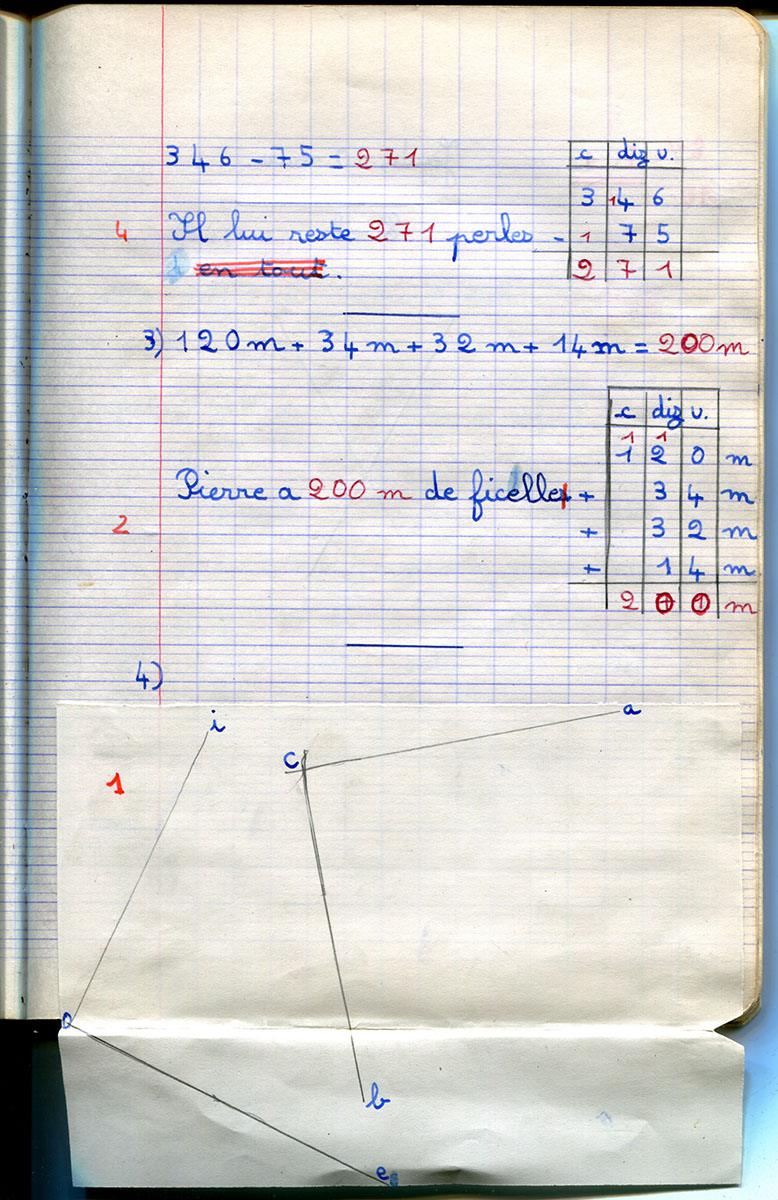 346 - 75 = 271
4 Il lui reste 271 perles
en tout.
c diz u.
3 14 6
- 1 7 5
2 7 1
3) 120m + 34m + 32m + 14m = 200m
Pierre a 200 m de ficelle
2
c diz u.
1 1
1 2 0 m
+ 3 4 m
+ 3 2 m
+ 1 4 m
2 0 0 m
4)
1
i
c
a
o
b
e